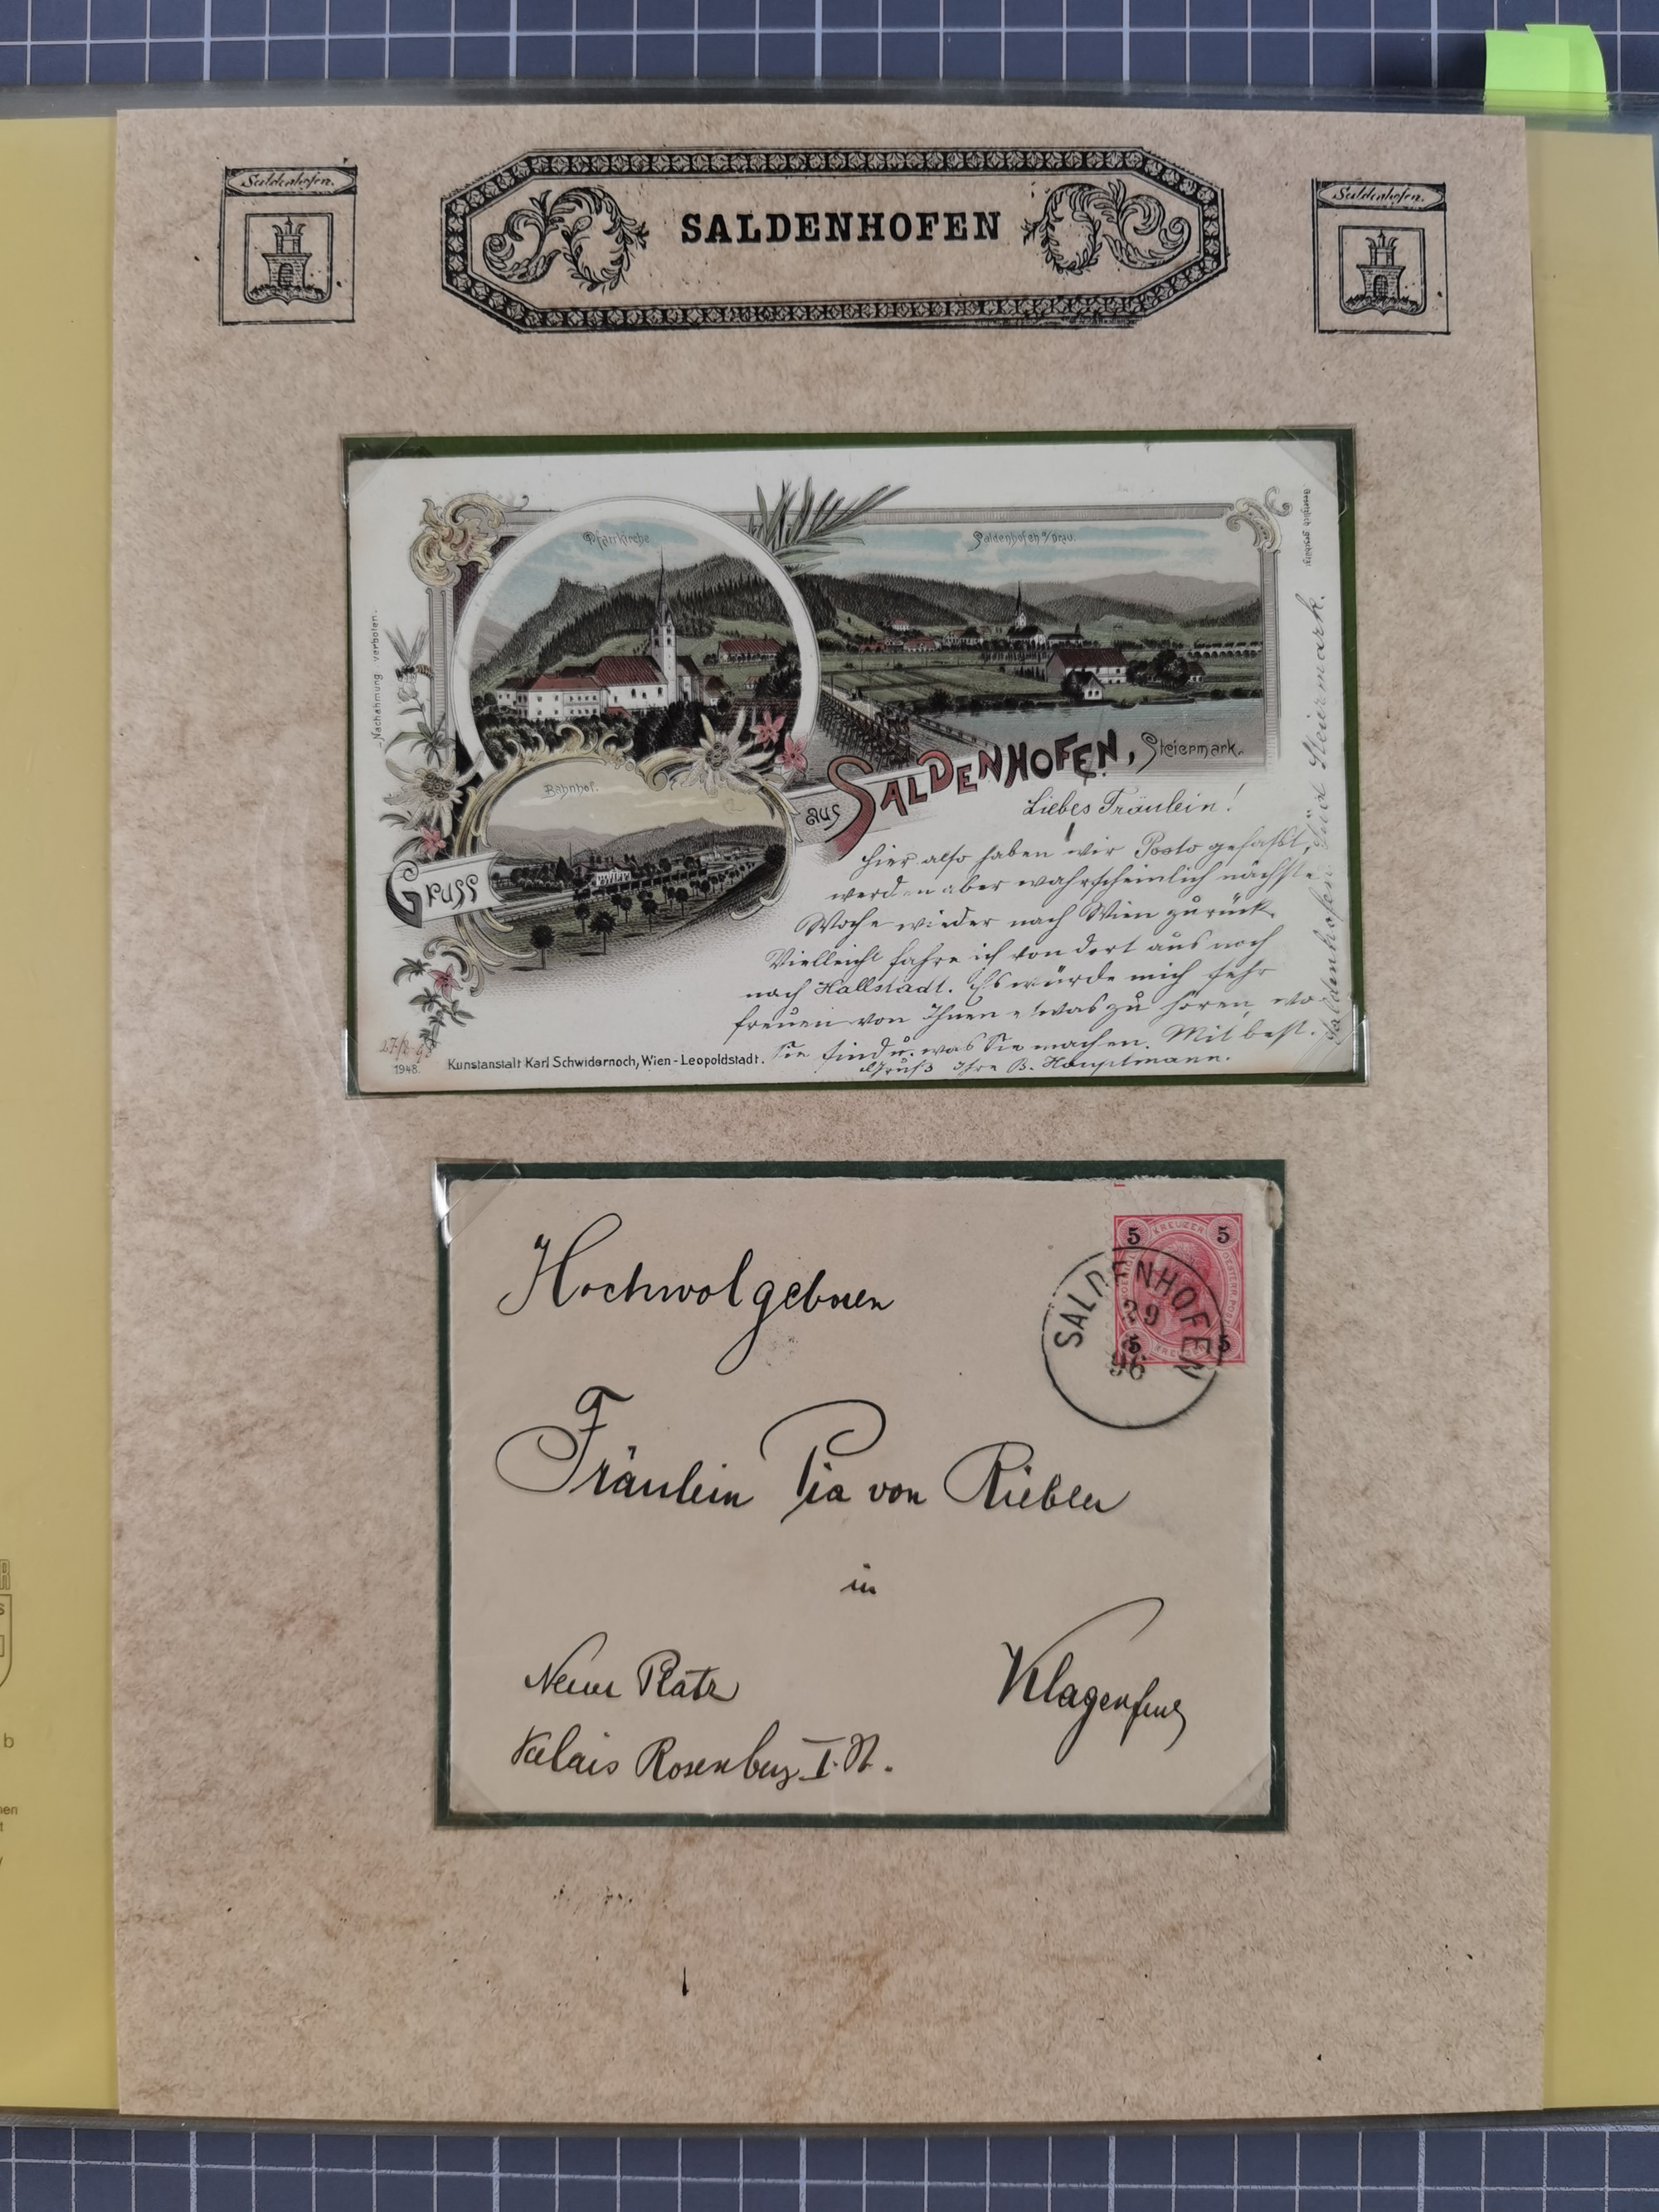 Saldenhofen.
SALDENHOFEN
Saldenhofen.
Pfarrkirche
Saldenhofen a/Drau.
Gesetzlich geschützt
Nachahmung verboten.
Bahnhof.
Gruss
aus
SALDENHOFEN, Steiermark.
Liebes Fräulein!
Hier also haben wir Posto gefaßt,
werden aber wahrscheinlich nächste
Woche wieder nach Wien zurück.
Vielleicht fahre ich von dort aus noch
nach Hallstadt. Es würde mich sehr
freuen von Ihnen etwas zu hören, wo
Sie sind u. was Sie machen. Mit best.
Gruß Ihre B. Hauptmann.
Saldenhofen Süd Steiermark.
1948.
Kunstanstalt Karl Schwidernoch, Wien-Leopoldstadt.
5 KREUZER 5
5 5
SALDENHOFEN
29
96
Hochwolgeboren
Fräulein Pia von Riebler
in
Neuer Platz
Klagenfurt
Palais Rosenberg I. St.
b